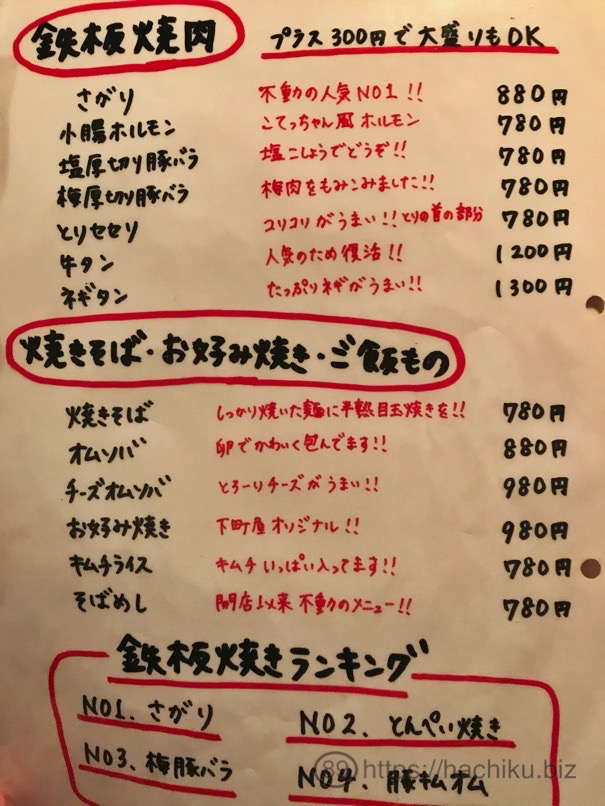 鉄板焼肉 プラス300円で大盛りもOK
さがり 不動の人気NO1!! 880円
小腸ホルモン こてっちゃん風ホルモン 780円
塩厚切り豚バラ 塩こしょうでどうぞ!! 780円
梅厚切り豚バラ 梅肉をもみこみました!! 780円
とりセセリ コリコリがうまい!!とりの首の部分 780円
牛タン 人気のため復活!! 1200円
ネギタン たっぷりネギがうまい!! 1300円
焼きそば・お好み焼き・ご飯もの
焼きそば しっかり焼いた麺に半熟目玉焼きを!! 780円
オムソバ 卵でかわいく包んでます!! 880円
チーズオムソバ とろーりチーズがうまい!! 980円
お好み焼き 下町屋オリジナル!! 980円
キムチライス キムチいっぱい入ってます!! 780円
そばめし 開店以来不動のメニュー!! 780円
鉄板焼きランキング
NO1、さがり NO2、とんぺい焼き
NO3、梅豚バラ NO4、豚キムオム
89 https://hachiku.biz